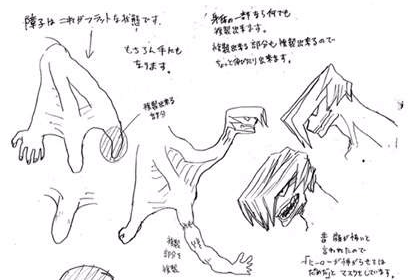 障子はこれがフラットな状態です。
もちろん手にも
なります。
複製出来る
部分
身体の一部なら何でも
複製出来ます。
複製出来る部分も複製出来るので
ちょっと伸びたり出来ます。
複製
部分を
複製
昔 顔が怖いと
言われたので
「ヒーローが怖がらせては
だめだ」とマスクをしています。